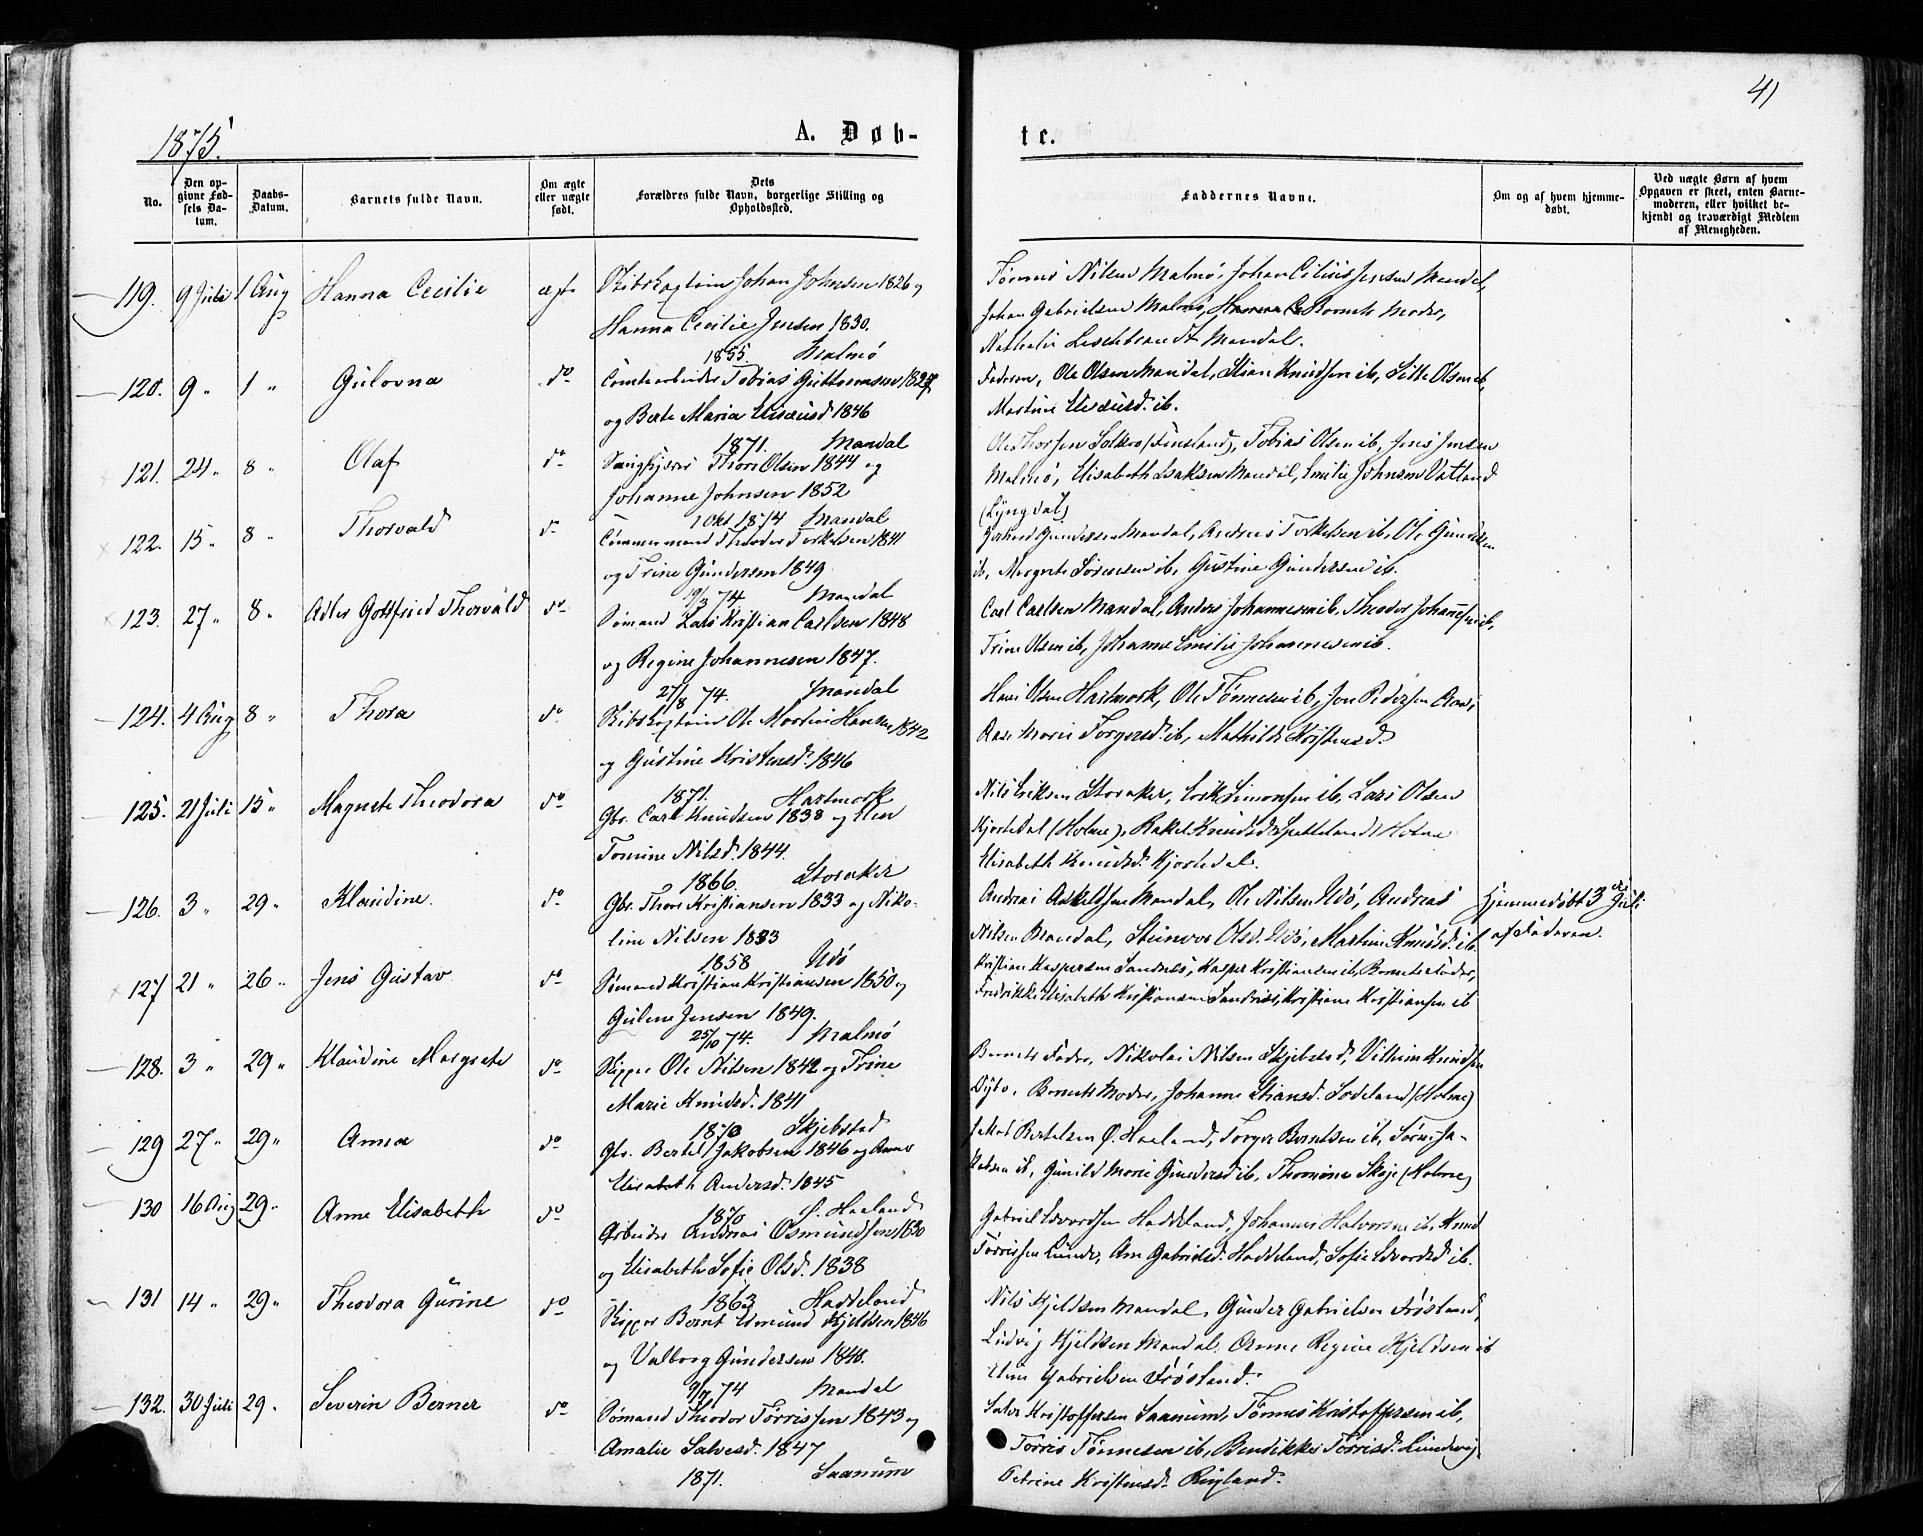 41
1875.
A. Døb-
te.
No.
Den op-
givne Fød-
sels Da-
tum.
Daabs-
Datum.
Barnets fulde Navn.
Om ægte
eller uægte
født.
Dets
Forældres fulde Navn, borgerlige Stilling og
Opholdssted.
Faddernes Navne.
Om og af hvem hjemme-
døbt.
Ved uægte Børn af hvem
Opgaven er skeet, enten Barne-
moderen, eller hvilket be-
kjendt og troværdigt Medlem
af Menigheden.
119. 9 Juli 1 Aug Hanna Cecilie ægte Skibskaptein Johan Johnsen 1826 og
Hanna Cecilie Jensen 1830.
1855. Malmø
Tønnes Nilsen Malmø, Johan Jensen Mandal,
Johan Gabrielsen Malmø, Barnets Moder,
Nathalie Mandal.
120. 9 " 1 " Gulovna do Tobias Guttormsen 1827
og Berte Maria Elisæusd. 1846
1871. Mandal
Faderen, Ole Olsen Mandal, Stian Knudsen ib, Sille Olsen ib,
Martine Elisæusd. ib.
121. 24 " 8 " Olaf do Thore Olsen 1844 og
Johanne Johnsen 1852
7 Okt 1874 Mandal
Ole Thorsen (Finsland), Tobias Olsen ib, Jens Jensen
Malmø, Elisabeth Isaksen Mandal, Emilie Johnsen Vatland
(Lyngdal)
122. 15 " 8 " Thorvald do Tømmermand Theodor Torkelsen 1841
og Trine Gundersen 1849
19/3 74 Mandal
Gerhard Gundersen Mandal, Andreas Torkelsen ib, Ole Gundersen
ib, Margrete Sørensen ib, Gustine Gundersen ib.
123. 27 " 8 " Adler Gottfried Thorvald do Sømand Lars Kristian Carlsen 1848
og Regine Johannesen 1847.
27/8 74. Mandal
Carl Carlsen Mandal, Anders Johannesen ib, Theodor Johannesen ib,
Trine Olsen ib, Johanne Emilie Johannesen ib.
124. 4 Aug 8 " Thora do Skibskaptein Ole Martin Hansen 1842
og Gustine Kristensd. 1846
1871. Hartmark
Hans Olsen Hartmark, Ole Tønnesen ib, Jon Pedersen
Marie Torgersd. ib, Mathilde Kristensd.
125. 21 Juli 15 " Magnete Theodora do Gbr. Carl Knudsen 1838 og Elen
Tomine Nilsd. 1844.
1866. Storaker
Nils Eriksen Storaker, Erik Simonsen ib, Lars Olsen
Hjortedal (Holme), Rakel Knudsd. Spetteland Holme
Elisabeth Knudsd. Hjortedal.
126. 3 " 29 " Klaudine. do Gbr. Thore Kristiansen 1833 og Niko-
line Nilsen 1833
1858 Udø
Andreas Askildsen Mandal, Ole Nilsen Udø, Andreas
Nilsen Mandal, Steinvor Olsd. Udø, Martine Knudsd. ib.
Hjemmedøbt 3 Juli
af Faderen.
127 21 " 26 " Jens Gustav do Sømand Kristian Kristiansen 1850 og
Gulene Jensen 1849.
25/10 74. Malmø
Kristian Kaspersen Sandnes, Kasper Kristiansen ib, Barnets Fader,
Fredrikke Elisabeth Kristiansen Sandnes, Kristiane Kristiansen ib
128. 3 " 29 " Klaudine Margrete do Skipper Ole Nilsen 1842 og Trine
Marie Knudsd. 1841
1870 Skjebstad
Barnets Fader, Nikolai Nilsen Skjebstad, Vilhelm Knudsen
Dybo, Barnets Moder, Johanne Stiansd. Sodeland (Holme)
129 27 " 29 " Anna do Gbr. Bertel Jakobsen 1846 og Anne
Elisabeth Andersd. 1845
1870 Ø. Haaland
Jakob Bertelsen Ø. Haaland, Torger Berntsen ib, Tørres Ja-
kobsen ib, Gunild Marie Gundersd ib, Thomine Skoje (Holme)
130 16 Aug 29 " Anne Elisabeth do Arbeider Andreas Osmundsen 1830
og Elisabeth Sofie Olsd. 1838
1863 Haddeland
Gabriel Edvardsen Haddeland, Johannes Halvorsen ib, Knud
Tørrissen Lunde, Ane Gabrielsd. Haddeland, Sofie Edvardsd ib.
131 14 " 29 " Theodora Gurine do Skipper Bernt Edmund Kjeldsen 1846
og Valborg Gundersen 1848.
9/7 74 Mandal
Nils Kjeldsen Mandal, Gunder Gabrielsen Frøsland,
Ludvig Kjeldsen Mandal, Anne Regine Kjeldsen ib
Gabrielsen Frøsland.
132. 30 Juli 29. Severin Berner do Sømand Theodor Tørrissen 1843 og
Amalie Salvesd. 1847
1871. Saanum
Salve Kristoffersen Saanum, Tønnes Kristoffersen ib,
Tørris Tønnesen ib, Bendikke Tørrisd. Lundevig
Petrine Kristensd. Ringland.